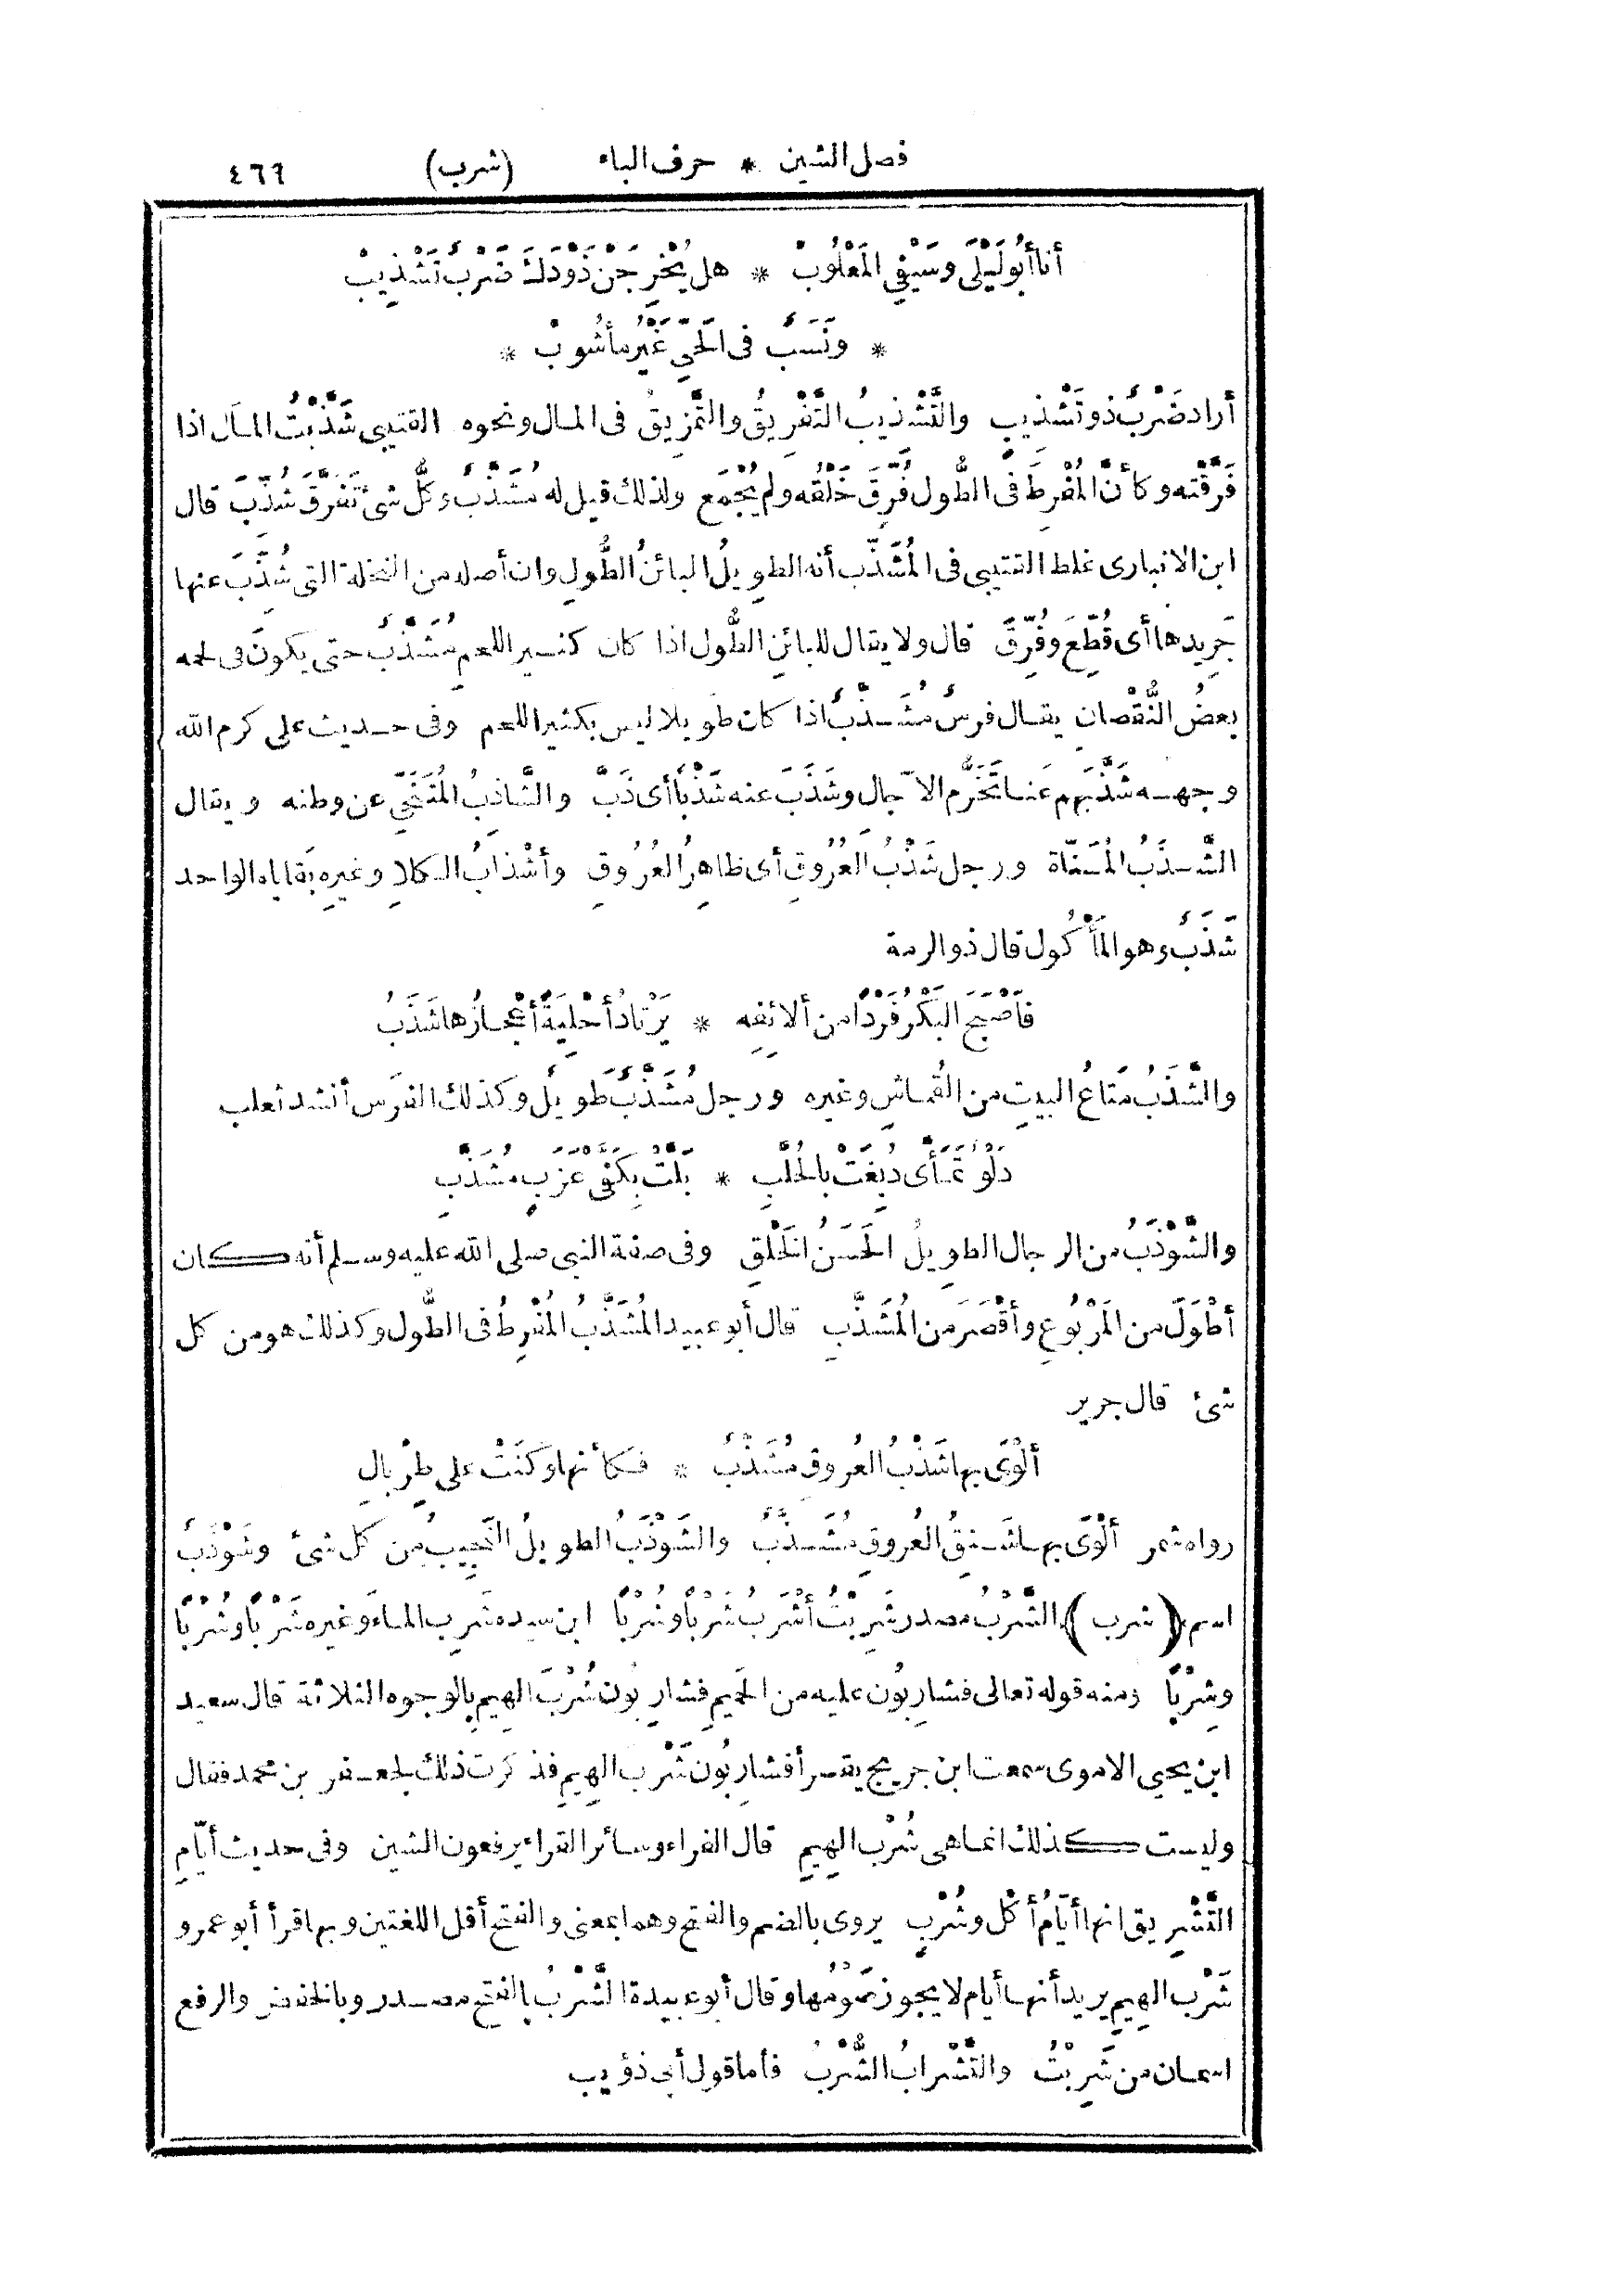 فصل الشين * حرف الباء (شرب) ٤٦٦
أنا أبُو لَيْلَى وسَيْفِي المَعْلُوبْ * هل يُخْرِجَنْ ذَوْدَكَ ضَرْبٌ تَشْذِيبْ
* ونَسَبٌ فى الحَيِّ غَيْرُ مأشُوبْ *
أراد ضَرْبٌ ذو تَشْذيبٍ والتَّشْذيبُ التَّفْرِيقُ والتَّمْزِيقُ فى المال ونحوه القتيبى شَذَّبْتُ المالَ اذا
فَرَّقْته وكأنَّ المُفْرِطَ فى الطُّول فُرِّقَ خَلْقُه ولم يُجْمَع ولذلك قيل له مُشَذَّبٌ وكلُّ شئ تَفَرَّقَ شُذِّبَ قال
ابن الانبارى غلط القتيبى فى المُشَذَّب أنه الطويلُ البائنُ الطُّولِ وان أصله من النخلة التى شُذِّبَ عنها
جَرِيدها أى قُطِّعَ وفُرِّقَ قال ولا يقال للبائنِ الطُّول اذا كان كثير اللحمِ مُشَذَّبٌ حتى يكونَ فى لحمه
بعضُ النُّقْصانِ يقال فرسٌ مُشَذَّبٌ اذا كان طويلا ليس بكثير اللحم وفى حديث على كرم الله
وجهه شَذَّبَهم عَنا تَخَرُّم الآجال وشَذَبَ عنه شَذْباً أى ذَبَّ والشَّاذِبُ المُتَنَحِّي عن وطنه ويقال
الشَّذَبُ المُسَنَّاة ورجل شَذْبُ العُرُوقِ أى ظاهِرُ العُرُوقِ وأشْذابُ الكَلاِ وغيرِه بَقاياه الواحد
شَذَبٌ وهو المَأْكُول قال ذو الرمة
فأَصْبَحَ البَكْرُ فَرْدًا من ألائفِه * يَرْتادُ أحْلِيَةً أعْجازُها شَذَبُ
والشَّذَبُ مَتاعُ البيتِ من القُماشِ وغيره ورجل مُشَذَّبٌ طويلٌ وكذلك الفَرَس أنشد ثعلب
دَلْوٌ تَمَأَّى دُبِغَتْ بالحُلَّبِ * بَلَّتْ بِكَفَّيْ عَزَبٍ مُشَذَّبِ
والشَّوْذَبُ من الرجال الطويلُ الحَسَنُ الخَلْقِ وفى صفة النبى صلى الله عليه وسلم أنه كان
أطْوَلَ من المَرْبُوعِ وأقْصَرَ من المُشَذَّبِ قال أبو عبيد المُشَذَّبُ المُفْرِطُ فى الطُّول وكذلك هو من كل
شئ قال جرير
ألْوَى بها شَذْبُ العُروقِ مُشَذَّبٌ * فكأنها وكَنَتْ على طِرْبالِ
رواه شمر ألْوَى بها شَنِقُ العُروقِ مُشَذَّبٌ والشَّوْذَبُ الطويلُ النَّجِيبُ من كل شئ وشَوْذَبٌ
اسم (شرب) الشَّرْبُ مصدر شَرِبْتُ أَشْرَبُ شَرْبًا وشُرْبًا ابن سيده شَرِبَ الماءَ وغيره شَرْبًا وشُرْبًا
وشِرْبًا ومنه قوله تعالى فشارِبُون عليه من الحَمِيمِ فشارِبُون شُرْبَ الهِيمِ بالوجوه الثلاثة قال سعيد
ابن يحيى الاموى سمعت ابن جريج يقرأ فشارِبُون شَرْبَ الهِيمِ فذكرت ذلك لجعفر بن محمد فقال
وليست كذلك انما هى شُرْب الهِيمِ قال الفراء وسائر القراء يرفعون الشين وفى حديث أيّامِ
التَّشْرِيق انها أيّامُ أكْلٍ وشُرْبٍ يروى بالضم والفتح وهما بمعنى والفتح أقل اللغتين وبها قرأ أبو عمرو
شَرْب الهِيمِ يريد أنها أيام لا يجوز صَوْمُها وقال أبو عبيدة الشَّرْبُ بالفتح مصدر وبالخفض والرفع
اسمان من شَرِبْتُ والتَّشْرابُ الشُّرْبُ فأما قول أبى ذؤيب